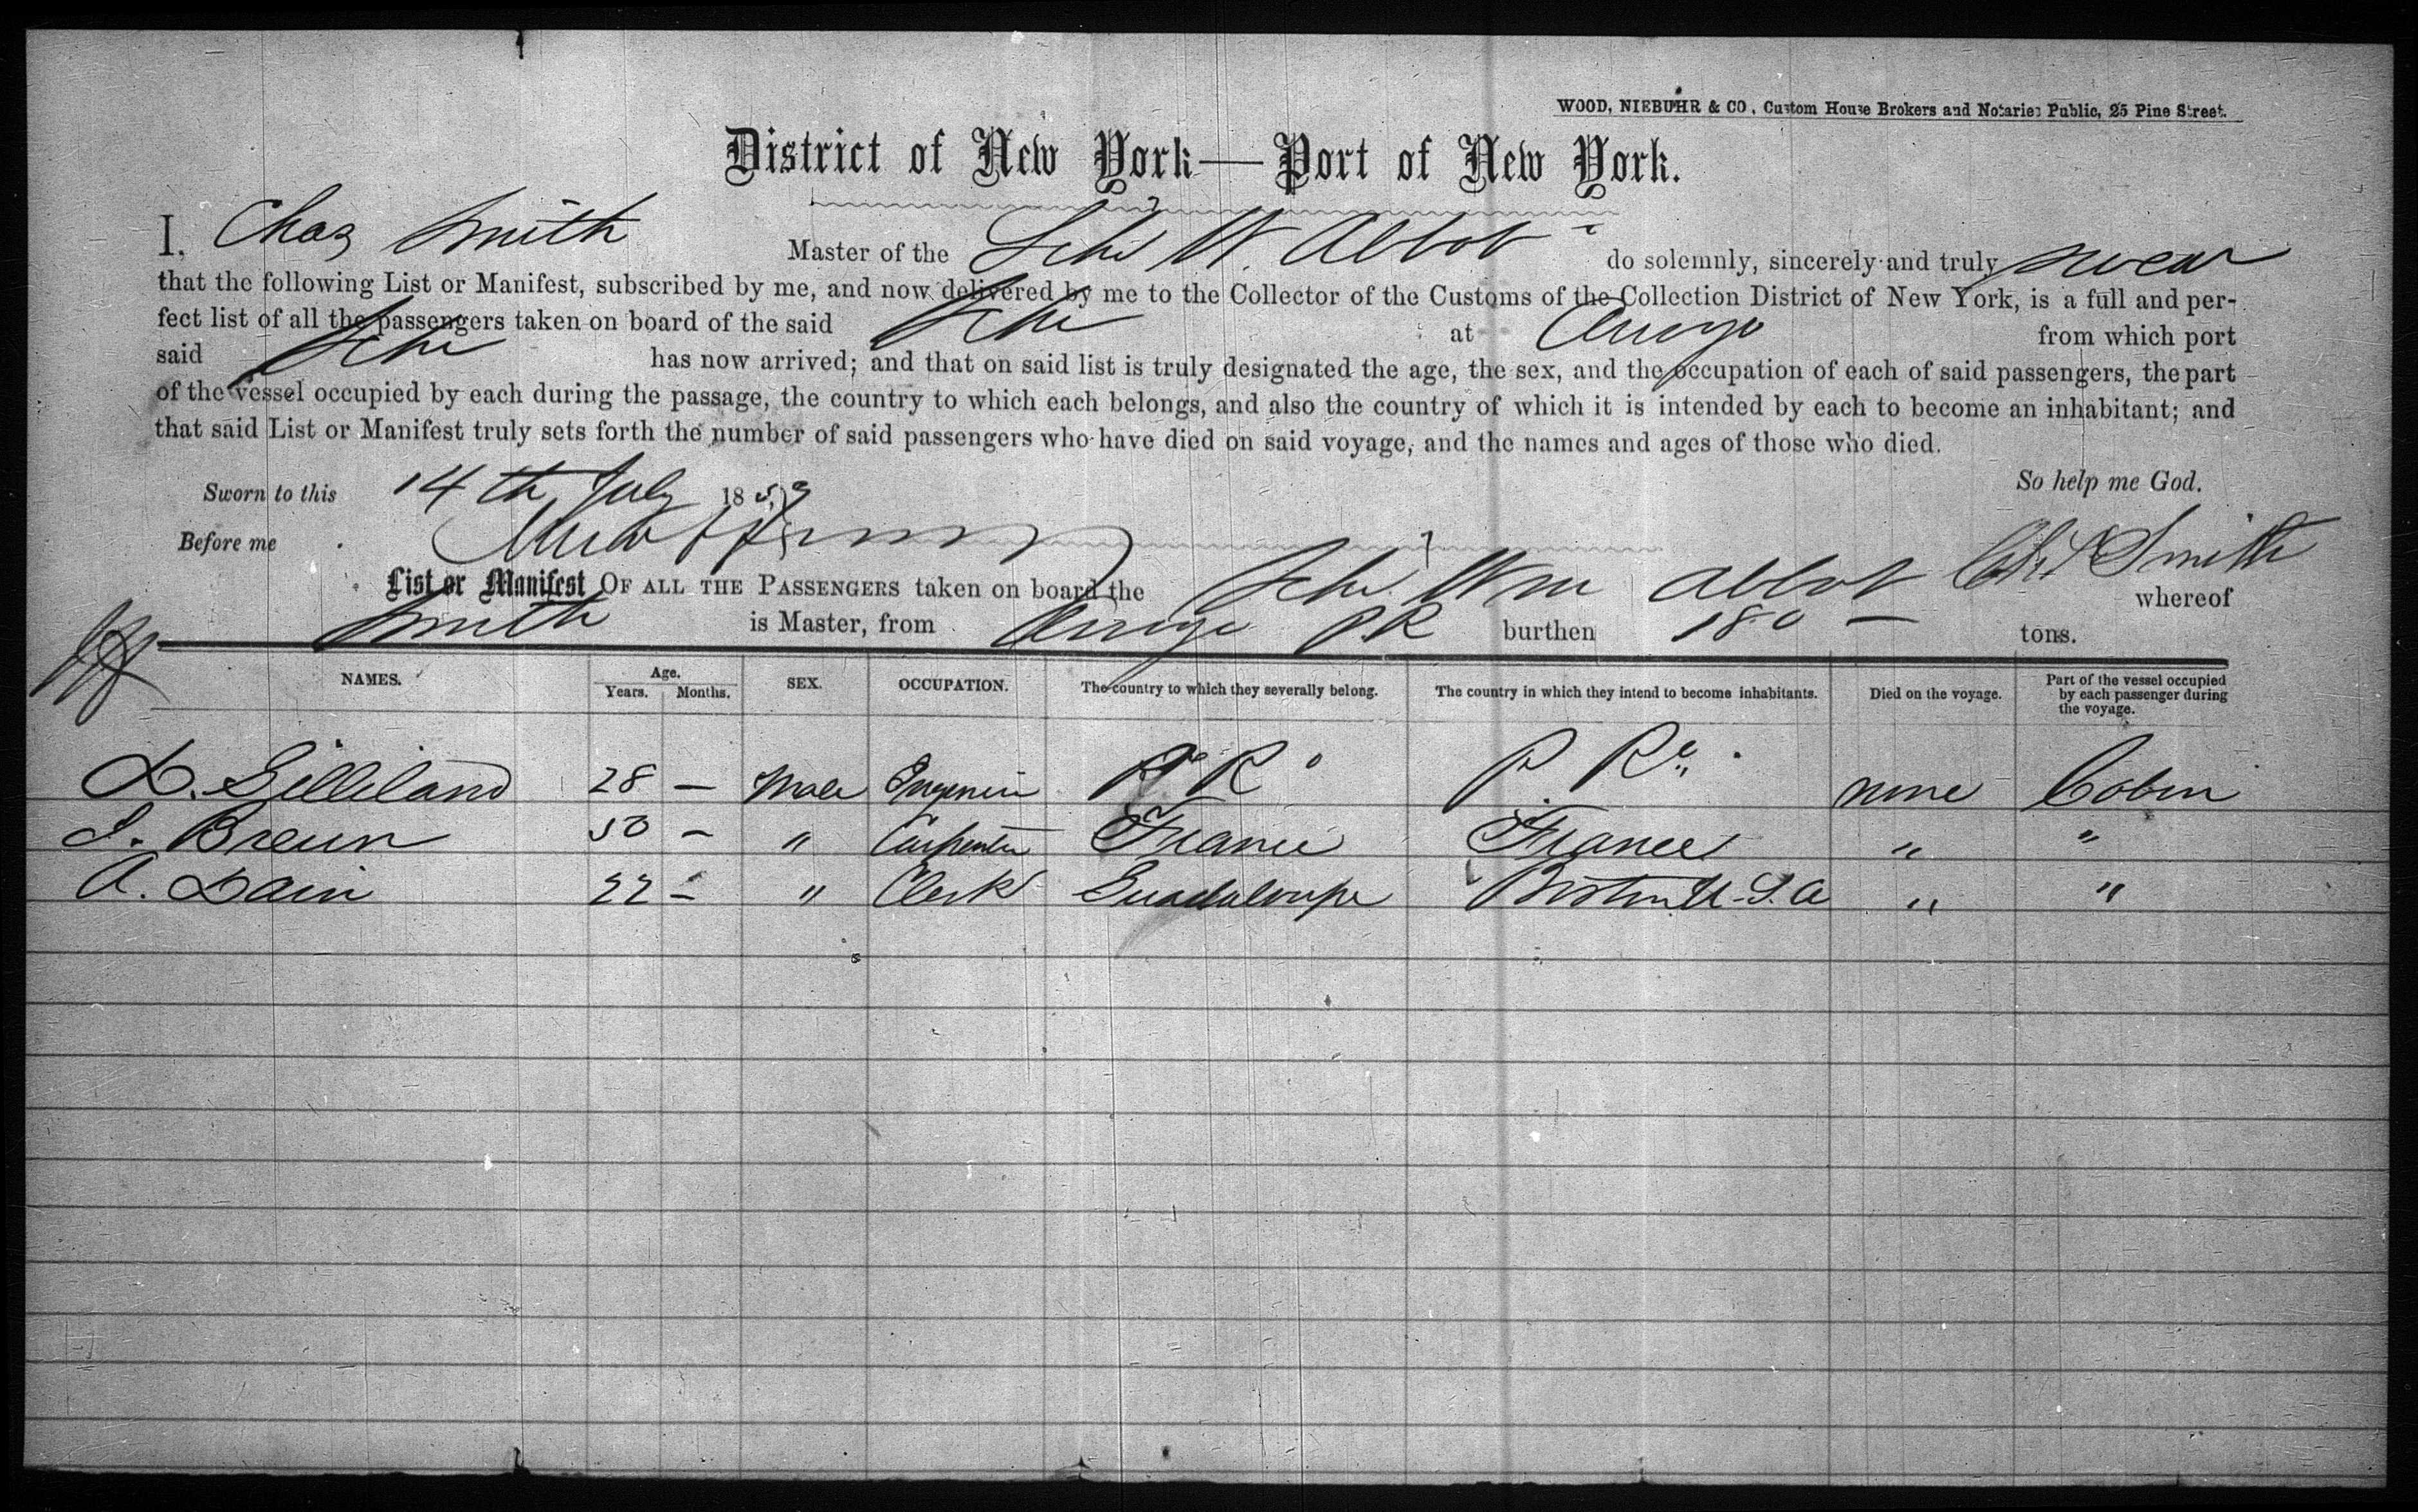 WOOD, NIEBUHR & CO, Custom House Brokers and Notaries Public, 25 Pine Street.
District of New York—Port of New York.
I, Chas Smith Master of the Schr W. Abbot do solemnly, sincerely and truly swear
that the following List or Manifest, subscribed by me, and now delivered by me to the Collector of the Customs of the Collection District of New York, is a full and per-
fect list of all the passengers taken on board of the said Schr at Arroyo from which port
said Schr has now arrived; and that on said list is truly designated the age, the sex, and the occupation of each of said passengers, the part
of the vessel occupied by each during the passage, the country to which each belongs, and also the country of which it is intended by each to become an inhabitant; and
that said List or Manifest truly sets forth the number of said passengers who have died on said voyage, and the names and ages of those who died.
Sworn to this 14th July 18 So help me God.
Before me Smith
List or Manifest OF ALL THE PASSENGERS taken on board the Schr Wm Abbot whereof
Smith is Master, from Arroyo PR burthen 180 — tons.
NAMES. Age. Years. Months. SEX. OCCUPATION. The country to which they severally belong. The country in which they intend to become inhabitants. Died on the voyage. Part of the vessel occupied by each passenger during the voyage.
D. Gilliland 28 — Male Engenir Po Ro P. Ro none Cabin
J. Breun 50 — " Carpenter France France " "
A. Dain 22 — " Clerk Guadaloupe Boston U.S.A " "